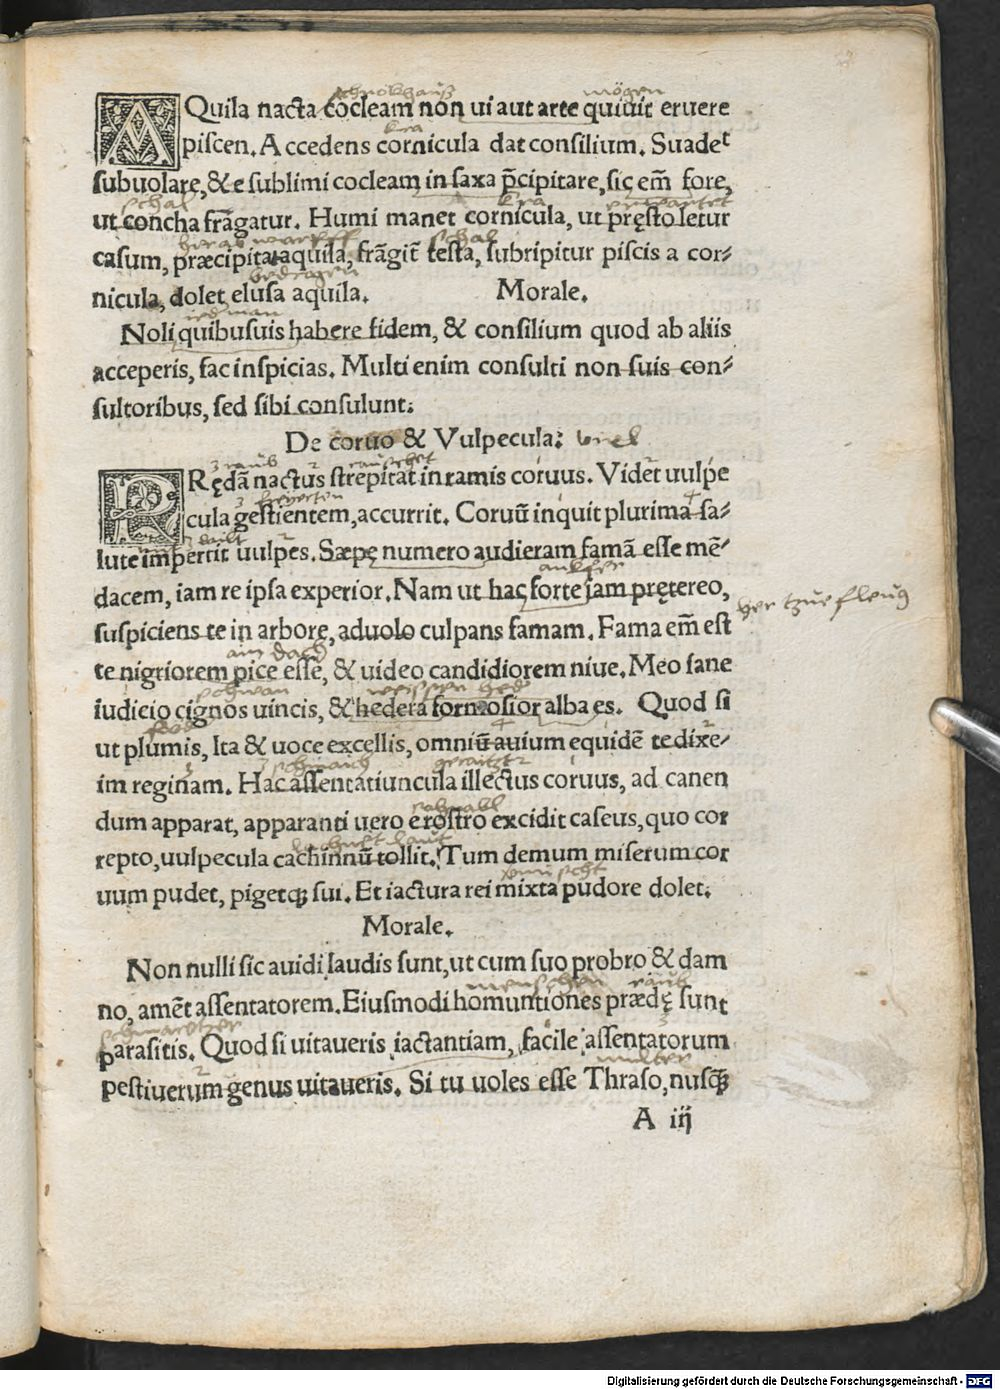 AQuila nacta cocleam non ui aut arte quiuit eruere
piscen. Accedens cornicula dat consilium. Suadeᵗ
subuolare, & e sublimi cocleam in saxa p̄cipitare, sic em̄ fore,
ut concha frāgatur. Humi manet cornicula, ut pręstoletur
casum, præcipitat aquila, frāgit̄ testa, subripitur piscis a cor⸗
nicula, dolet elusa aquila. Morale.
Noli quibusuis habere fidem, & consilium quod ab aliis
acceperis, fac inspicias. Multi enim consulti non suis con⸗
sultoribus, sed sibi consulunt.
De coruo & Vulpecula.
PRędā nactus strepitat in ramis coruus. Videt uulpe
cula gestientem, accurrit. Coruū inquit plurima sa⸗
lute impertit uulpes. Sæpę numero audieram famā esse mē⸗
dacem, iam re ipsa experior. Nam ut hac forte iam prętereo,
her tzue fleug
suspiciens te in arbore, aduolo culpans famam. Fama em̄ est
ain dach
te nigriorem pice esse, & uideo candidiorem niue. Meo sane
schwan
iudicio cignos uincis, & hedera formosior alba es. Quod si
ut plumis, Ita & uoce excellis, omniū auium equidē te dixe⸗
im reginam. Hac assentatiuncula illectus coruus, ad canen
dum apparat, apparanti uero e rostro excidit caseus, quo cor
repto, uulpecula cachinnū tollit. Tum demum miserum cor
uum pudet, pigetq; sui. Et iactura rei mixta pudore dolet.
Morale.
Non nulli sic auidi laudis sunt, ut cum suo probro & dam
menschen raub
no, amēt assentatorem. Eiusmodi homuntiones prædę sunt
parasitis. Quod si uitaueris iactantiam, facile assentatorum
pestiuerum genus uitaueris. Si tu uoles esse Thraso, nusq̄;
A iij
Digitalisierung gefördert durch die Deutsche Forschungsgemeinschaft - DFG